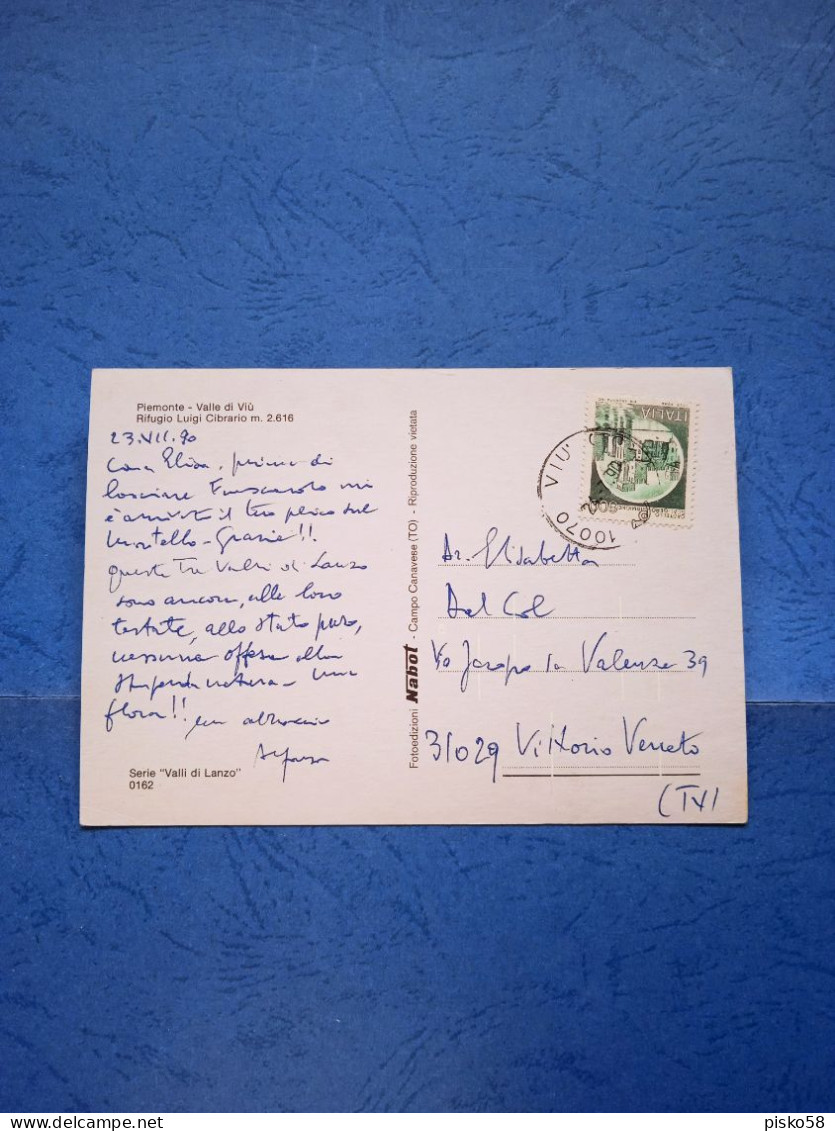 Piemonte - Valle di Viù
Rifugio Luigi Cibrario m. 2.616
23.VII.90
Cara Elisa, prima di
lasciare mi
è arrivato il tuo sul
Montello - Grazie!!
queste Tre Valli di Lanzo
sono ancora, alle loro
testate, allo stato puro,
nessuna offesa alla
stupenda natura - una
flora!! un abbraccio
Serie "Valli di Lanzo"
0162
Fotoedizioni Nabot - Campo Canavese (TO) - Riproduzione vietata
ITALIA
10070 VIU'
Elisabetta
Dal Col
Via Jacopo da Valenza 39
31029 Vittorio Veneto
(TV)
pisko58